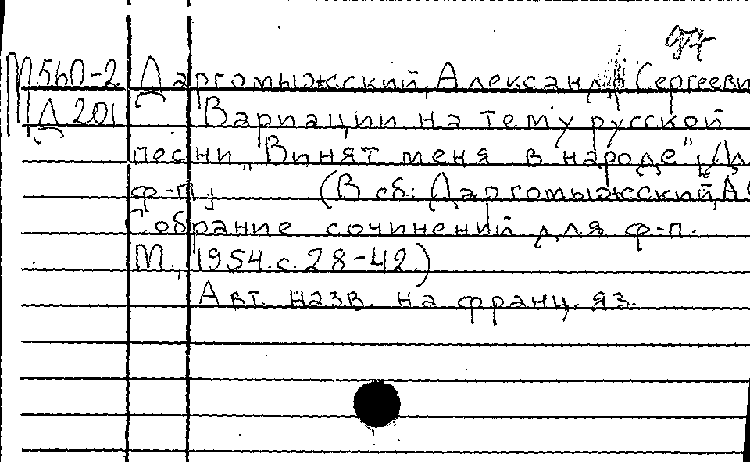 97
М560-2 Даргомыжский, Александр Сергееви
Д 201 Вариации на тему русской
песни "Винят меня в народе" [Дл
ф-п.] (В сб: Даргомыжский, А.С
Собрание сочинений для ф-п.
М., 1954. с. 28-42.)
Авт. назв. на франц. яз.